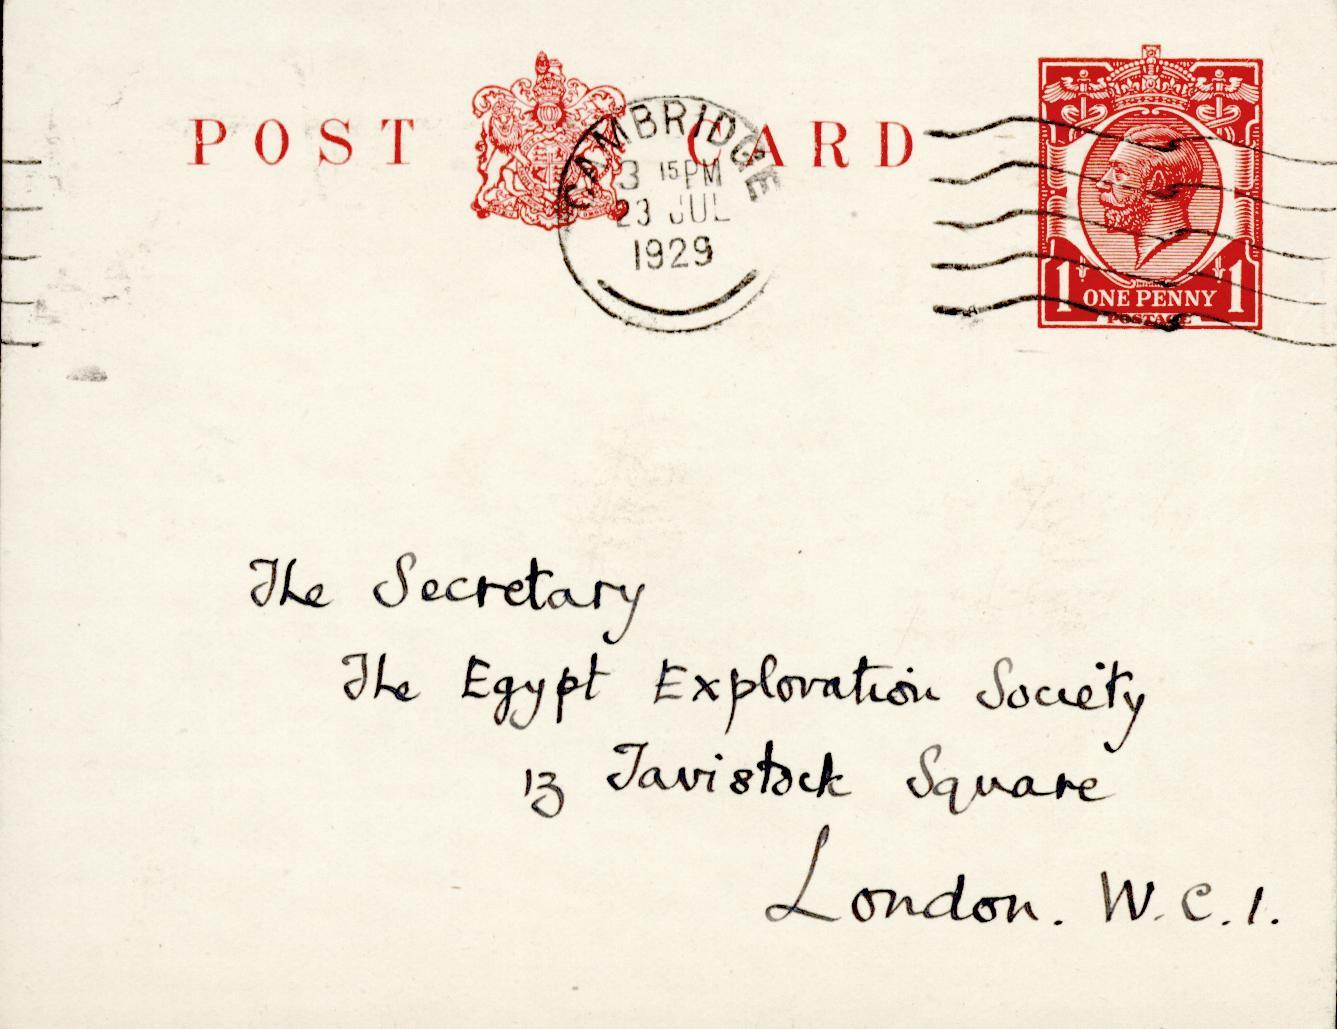 POST CARD
CAMBRIDGE
3 15 PM
23 JUL
1929
1 ONE PENNY 1
POSTAGE
The Secretary
The Egypt Exploration Society
13 Tavistock Square
London. W.C.1.